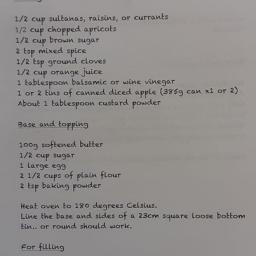 1/2 cup sultanas, raisins, or currants
1/2 cup chopped apricots
1/2 cup brown sugar
2 tsp mixed spice
1/2 tsp ground cloves
1/2 cup orange juice
1 tablespoon balsamic or wine vinegar
1 or 2 tins of canned diced apple (385g can x1 or 2)
About 1 tablespoon custard powder
Base and topping
100g softened butter
1/2 cup sugar
1 large egg
2 1/2 cups of plain flour
2 tsp baking powder
Heat oven to 180 degrees Celsius.
Line the base and sides of a 23cm square loose bottom
tin.. or round should work.
For filling